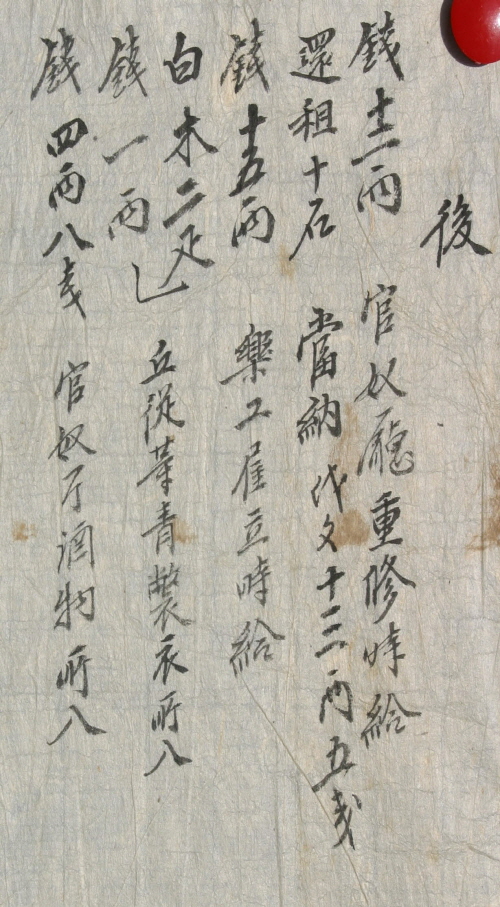 後
錢十二兩 官奴廳重修時給
還租十石 當納代文十三兩五戔
錢十五兩 樂工雇立時給
白木二疋
錢一兩 丘從等靑幣衣所入
錢四兩八戔 官奴厅酒物所入